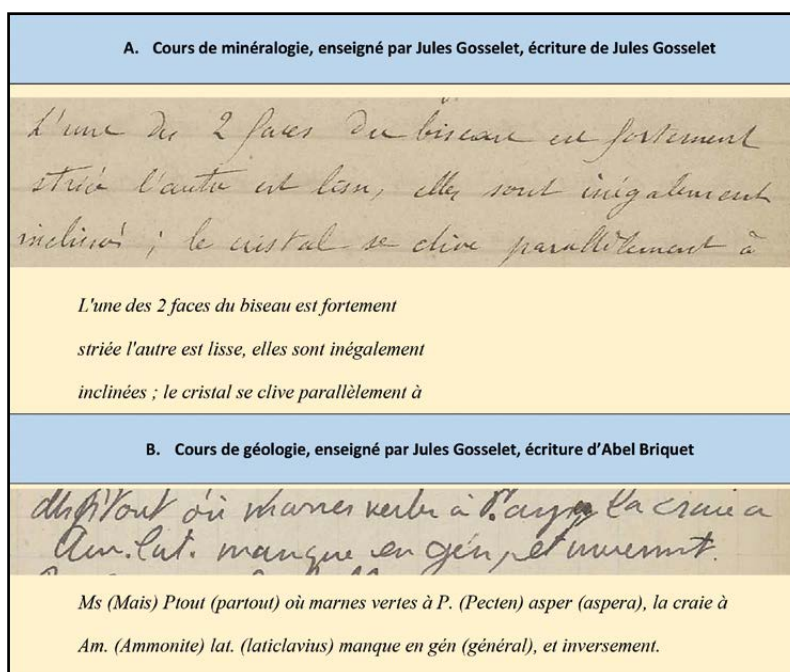 A. Cours de minéralogie, enseigné par Jules Gosselet, écriture de Jules Gosselet
L'une des 2 faces du biseau est fortement
striée l'autre est lisse, elles sont inégalement
inclinées ; le cristal se clive parallèlement à
L'une des 2 faces du biseau est fortement
striée l'autre est lisse, elles sont inégalement
inclinées ; le cristal se clive parallèlement à
B. Cours de géologie, enseigné par Jules Gosselet, écriture d'Abel Briquet
Ms Ptout où marnes vertes à P. asper la craie à
Am. lat. manque en gén, et inversmt.
Ms (Mais) Ptout (partout) où marnes vertes à P. (Pecten) asper (aspera), la craie à
Am. (Ammonite) lat. (laticlavius) manque en gén (général), et inversement.